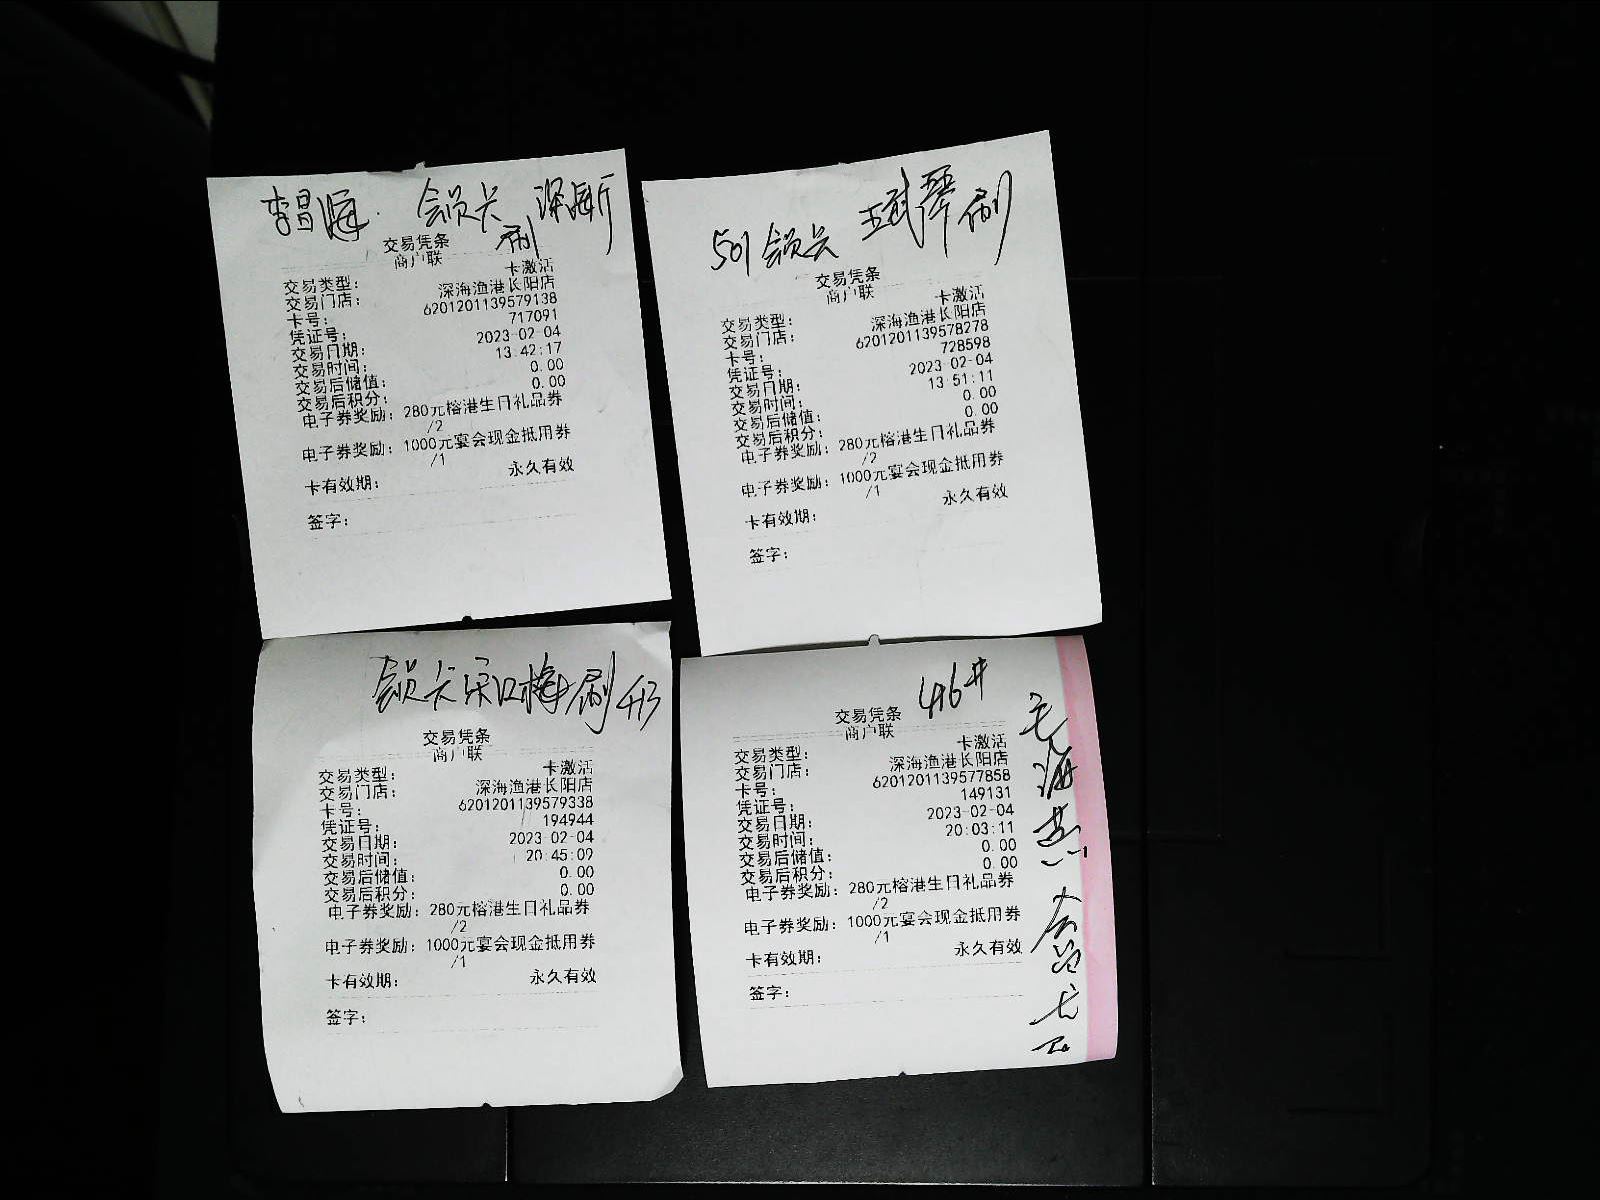 李昌海 会员卡 深海厅
刷
交易凭条
商户联
交易类型: 卡激活
交易门店: 深海渔港长阳店
卡号: 6201201139579138
凭证号: 717091
交易日期: 2023-02-04
交易时间: 13:42:17
交易后储值: 0.00
交易后积分: 0.00
电子券奖励: 280元榕港生日礼品券
/2
电子券奖励: 1000元宴会现金抵用券
/1
卡有效期: 永久有效
签字:
501 会员卡 刷
交易凭条
商户联
交易类型: 卡激活
交易门店: 深海渔港长阳店
卡号: 6201201139578278
凭证号: 728598
交易日期: 2023-02-04
交易时间: 13:51:11
交易后储值: 0.00
交易后积分: 0.00
电子券奖励: 280元榕港生日礼品券
/2
电子券奖励: 1000元宴会现金抵用券
/1
卡有效期: 永久有效
签字:
会员卡宋江梅刷
交易凭条
商户联
交易类型: 卡激活
交易门店: 深海渔港长阳店
卡号: 6201201139579338
凭证号: 194944
交易日期: 2023-02-04
交易时间: 20:45:09
交易后储值: 0.00
交易后积分: 0.00
电子券奖励: 280元榕港生日礼品券
/2
电子券奖励: 1000元宴会现金抵用券
/1
卡有效期: 永久有效
签字:
416#
交易凭条
商户联
交易类型: 卡激活
交易门店: 深海渔港长阳店
卡号: 6201201139577858
凭证号: 149131
交易日期: 2023-02-04
交易时间: 20:03:11
交易后储值: 0.00
交易后积分: 0.00
电子券奖励: 280元榕港生日礼品券
/2
电子券奖励: 1000元宴会现金抵用券
/1
卡有效期: 永久有效
签字:
海燕